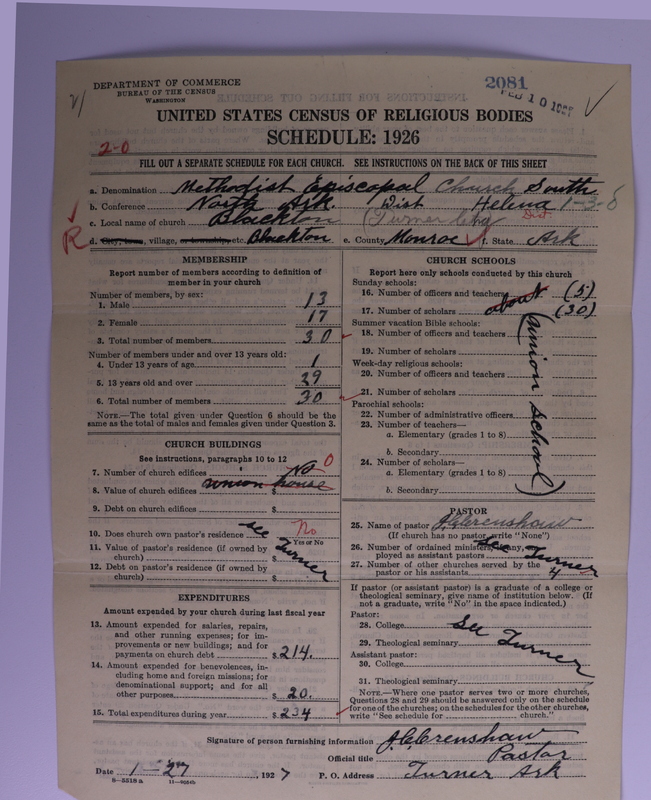 DEPARTMENT OF COMMERCE
BUREAU OF THE CENSUS
WASHINGTON
2081
FEB 10 1927
UNITED STATES CENSUS OF RELIGIOUS BODIES
SCHEDULE: 1926
2-0
FILL OUT A SEPARATE SCHEDULE FOR EACH CHURCH. SEE INSTRUCTIONS ON THE BACK OF THIS SHEET
a. Denomination Methodist Episcopal Church South
b. Conference North Ark. Dist Helena 1-3-0
c. Local name of church Blackton (Turner Chg Dist.
R d. City, town, village, or township, etc. Blackton e. County Monroe f. State Ark
MEMBERSHIP
Report number of members according to definition of
member in your church
Number of members, by sex:
1. Male 13
2. Female 17
3. Total number of members 30
Number of members under and over 13 years old:
4. Under 13 years of age 1
5. 13 years old and over 29
6. Total number of members 30
NOTE.—The total given under Question 6 should be
same as the total of males and females given under Question 3.
CHURCH BUILDINGS
See instructions, paragraphs 10 to 12
7. Number of church edifices No 0
8. Value of church edifices union house $
9. Debt on church edifices $
10. Does church own pastor's residence see No
Yes or No
11. Value of pastor's residence (if owned by
church) $ Turner
12. Debt on pastor's residence (if owned by
church) $
EXPENDITURES
Amount expended by your church during last fiscal year
13. Amount expended for salaries, repairs,
and other running expenses; for im-
provements or new buildings; and for
payments on church debt $ 214.
14. Amount expended for benevolences, in-
cluding home and foreign missions; for
denominational support; and for all
other purposes $ 20.
15. Total expenditures during year $ 234
CHURCH SCHOOLS
Report here only schools conducted by this church
Sunday schools:
16. Number of officers and teachers about (5)
17. Number of scholars (30)
Summer vacation Bible schools:
18. Number of officers and teachers
19. Number of scholars
Week-day religious schools:
20. Number of officers and teachers
21. Number of scholars
Parochial schools:
22. Number of administrative officers
23. Number of teachers—
a. Elementary (grades 1 to 8)
b. Secondary
24. Number of scholars—
a. Elementary (grades 1 to 8)
b. Secondary
(union school)
PASTOR
25. Name of pastor J.C. Crenshaw
(If church has no pastor, write "None")
26. Number of ordained ministers, if any, em-
ployed as assistant pastors see Turner
27. Number of other churches served by the
pastor or his assistants 4
If pastor (or assistant pastor) is a graduate of a college or
theological seminary, give name of institution below. (If
not a graduate, write "No" in the space indicated.)
Pastor:
28. College See Turner
29. Theological seminary
Assistant pastor:
30. College
31. Theological seminary
NOTE.—Where one pastor serves two or more churches,
Questions 28 and 29 should be answered only on the schedule
for one of the churches; on the schedules for the other churches,
write "See schedule for church."
Signature of person furnishing information J.C. Crenshaw
Official title Pastor
Date 1-27, 1927 P. O. Address Turner Ark
8-5518 a